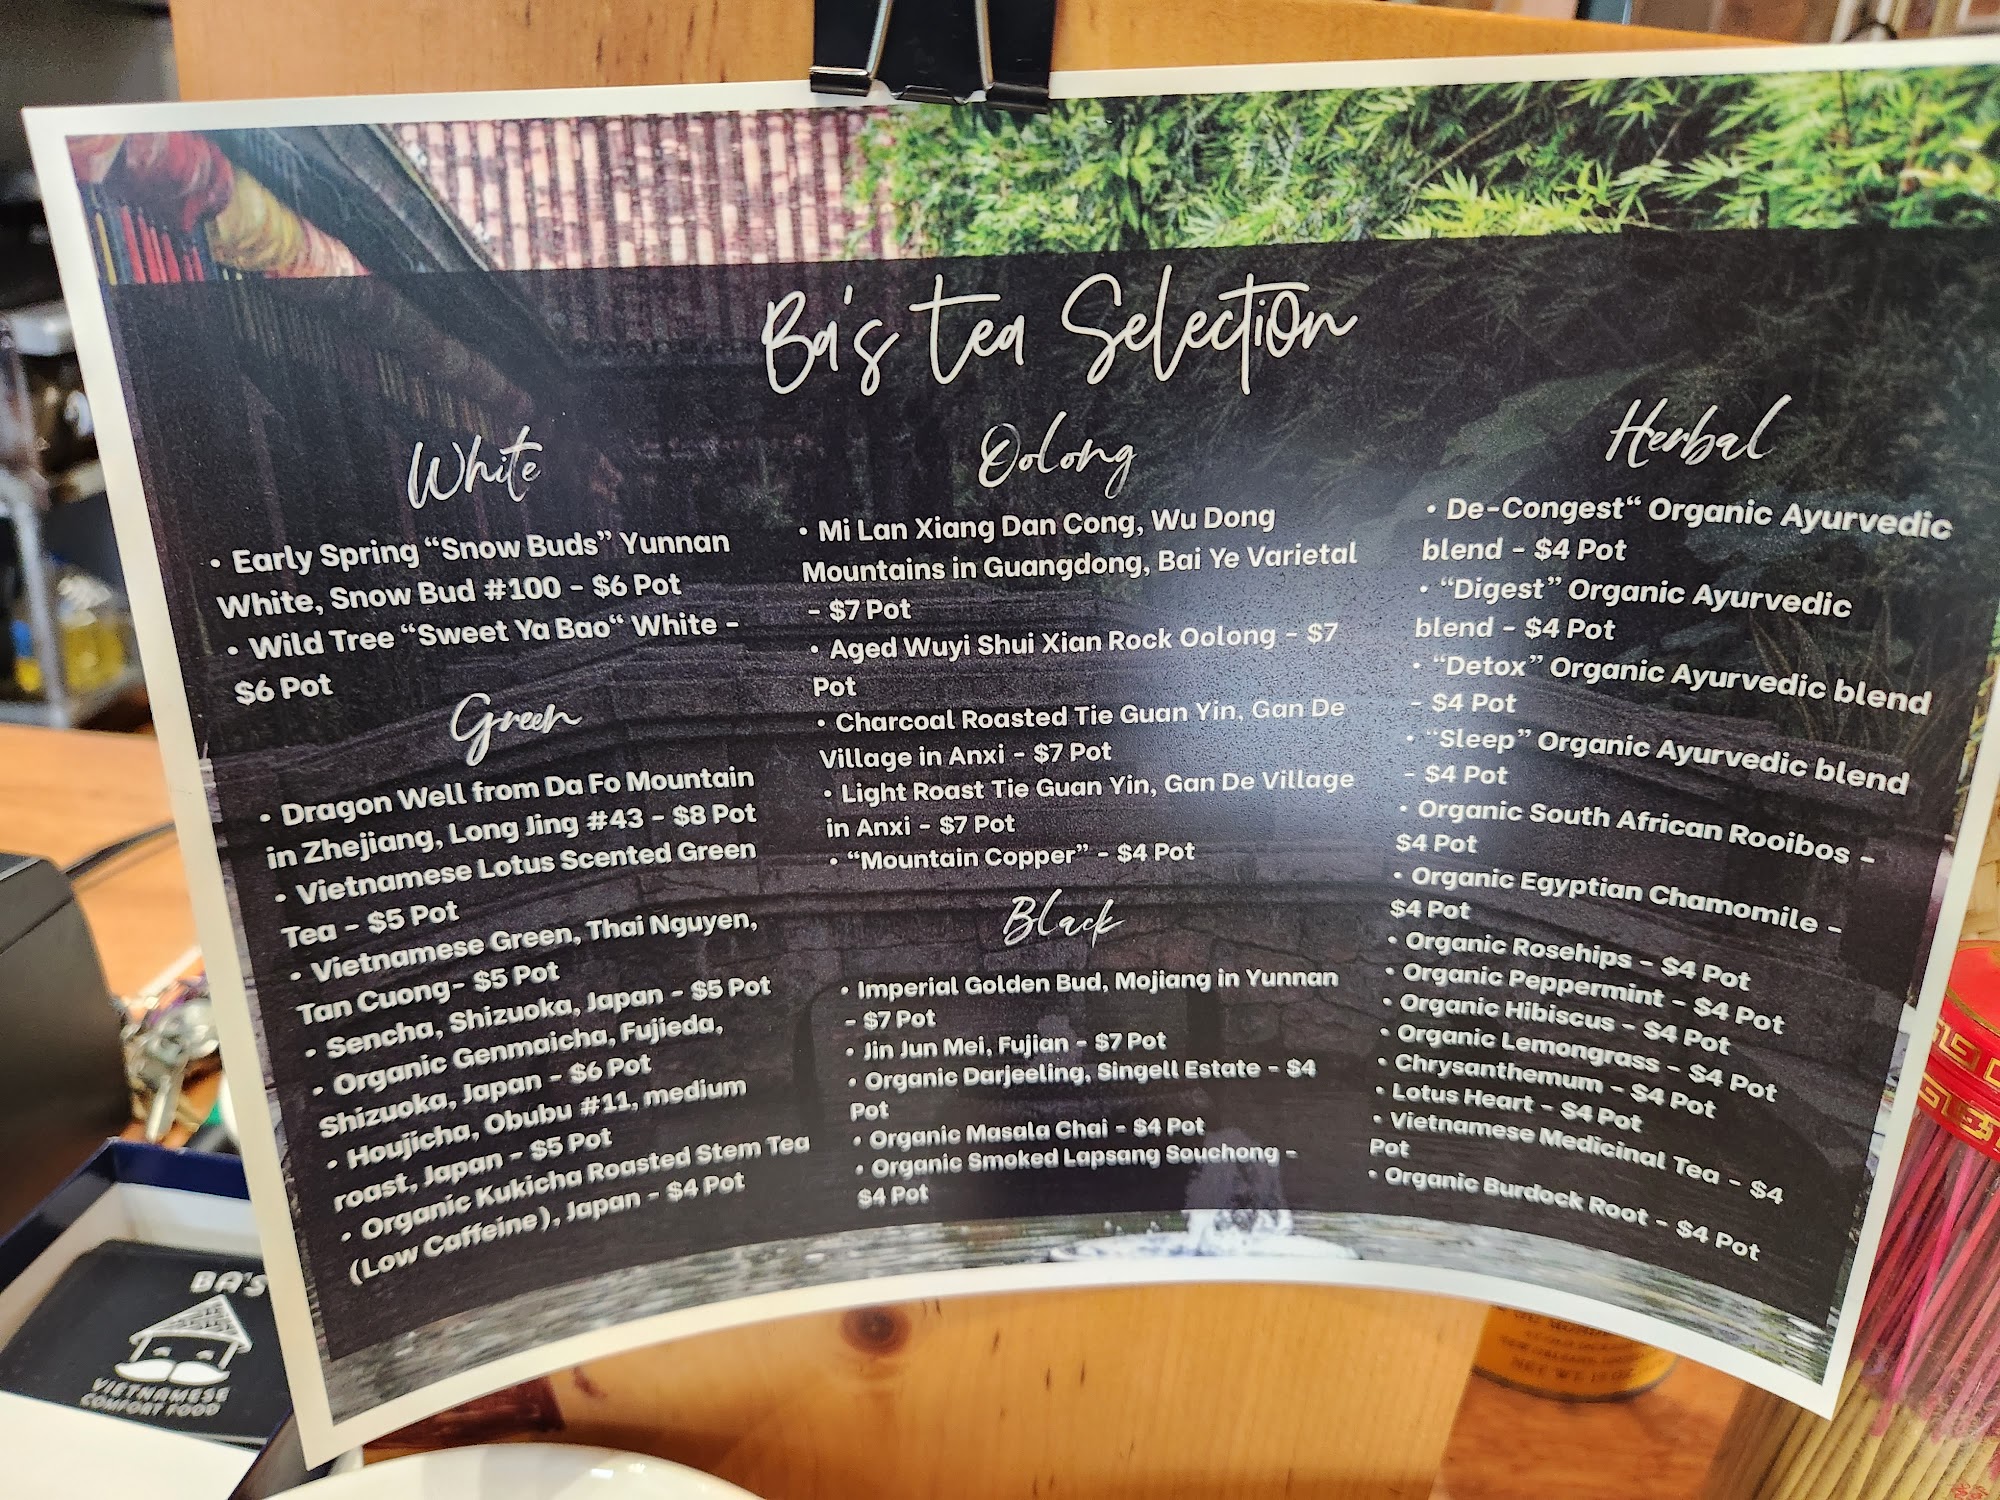 Ba's tea Selection
White
• Early Spring “Snow Buds” Yunnan
White, Snow Bud #100 - $6 Pot
• Wild Tree “Sweet Ya Bao“ White -
$6 Pot
Green
• Dragon Well from Da Fo Mountain
in Zhejiang, Long Jing #43 - $8 Pot
• Vietnamese Lotus Scented Green
Tea - $5 Pot
• Vietnamese Green, Thai Nguyen,
Tan Cuong- $5 Pot
• Sencha, Shizuoka, Japan - $5 Pot
• Organic Genmaicha, Fujieda,
Shizuoka, Japan - $6 Pot
• Houjicha, Obubu #11, medium
roast, Japan - $5 Pot
• Organic Kukicha Roasted Stem Tea
(Low Caffeine), Japan - $4 Pot
Oolong
• Mi Lan Xiang Dan Cong, Wu Dong
Mountains in Guangdong, Bai Ye Varietal
- $7 Pot
• Aged Wuyi Shui Xian Rock Oolong - $7
Pot
• Charcoal Roasted Tie Guan Yin, Gan De
Village in Anxi - $7 Pot
• Light Roast Tie Guan Yin, Gan De Village
in Anxi - $7 Pot
• “Mountain Copper” - $4 Pot
Black
• Imperial Golden Bud, Mojiang in Yunnan
- $7 Pot
• Jin Jun Mei, Fujian - $7 Pot
• Organic Darjeeling, Singell Estate - $4
Pot
• Organic Masala Chai - $4 Pot
• Organic Smoked Lapsang Souchong -
$4 Pot
Herbal
• De-Congest“ Organic Ayurvedic
blend - $4 Pot
• “Digest” Organic Ayurvedic
blend - $4 Pot
• “Detox” Organic Ayurvedic blend
- $4 Pot
• “Sleep” Organic Ayurvedic blend
- $4 Pot
• Organic South African Rooibos -
$4 Pot
• Organic Egyptian Chamomile -
$4 Pot
• Organic Rosehips - $4 Pot
• Organic Peppermint - $4 Pot
• Organic Hibiscus - $4 Pot
• Organic Lemongrass - $4 Pot
• Chrysanthemum - $4 Pot
• Lotus Heart - $4 Pot
• Vietnamese Medicinal Tea - $4
Pot
• Organic Burdock Root - $4 Pot
BA'S
VIETNAMESE
COMFORT FOOD